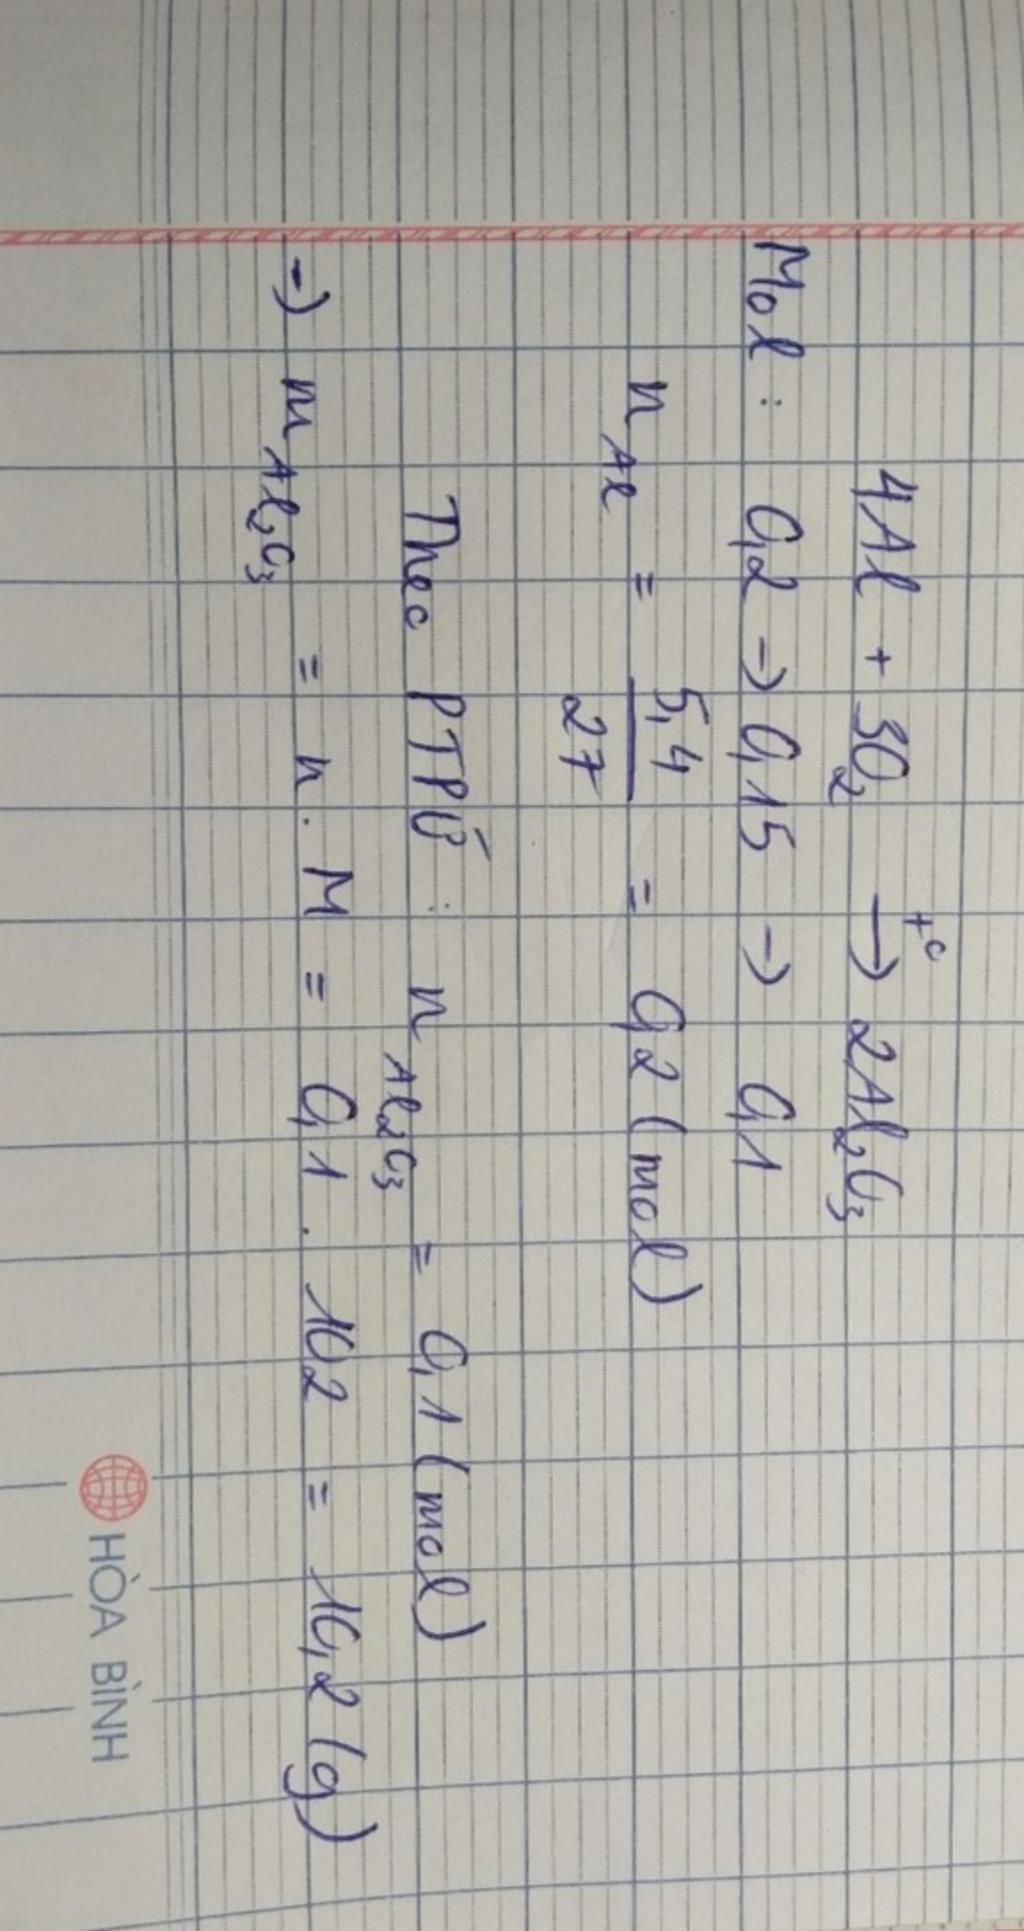 4Al + 3O₂ →(t°) 2Al₂O₃
Mol : 0,2 → 0,15 → 0,1
n_Al = 5,4/27 = 0,2 (mol)
Theo PTPƯ : n_Al₂O₃ = 0,1 (mol)
→ m_Al₂O₃ = n . M = 0,1 . 102 = 10,2 (g)
HÒA BÌNH